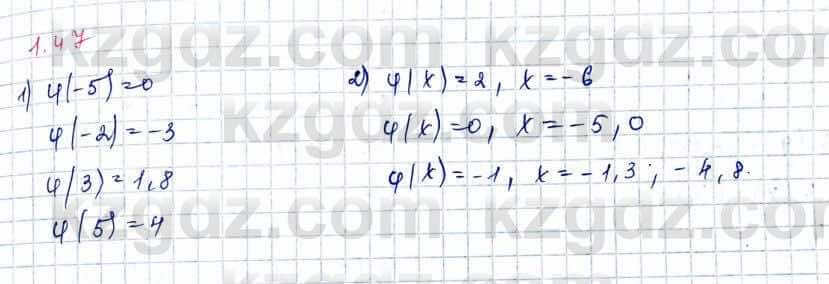 1.47
1) φ(-5)=0
φ(-2)=-3
φ(3)=1,8
φ(5)=4
2) φ(x)=2, x=-6
φ(x)=0, x=-5,0
φ(x)=-1, x=-1,3; -4,8.
kzgdz.com kzgdz.com
kzgdz.com
kzgdz.com kzgdz.com
kzgdz.com